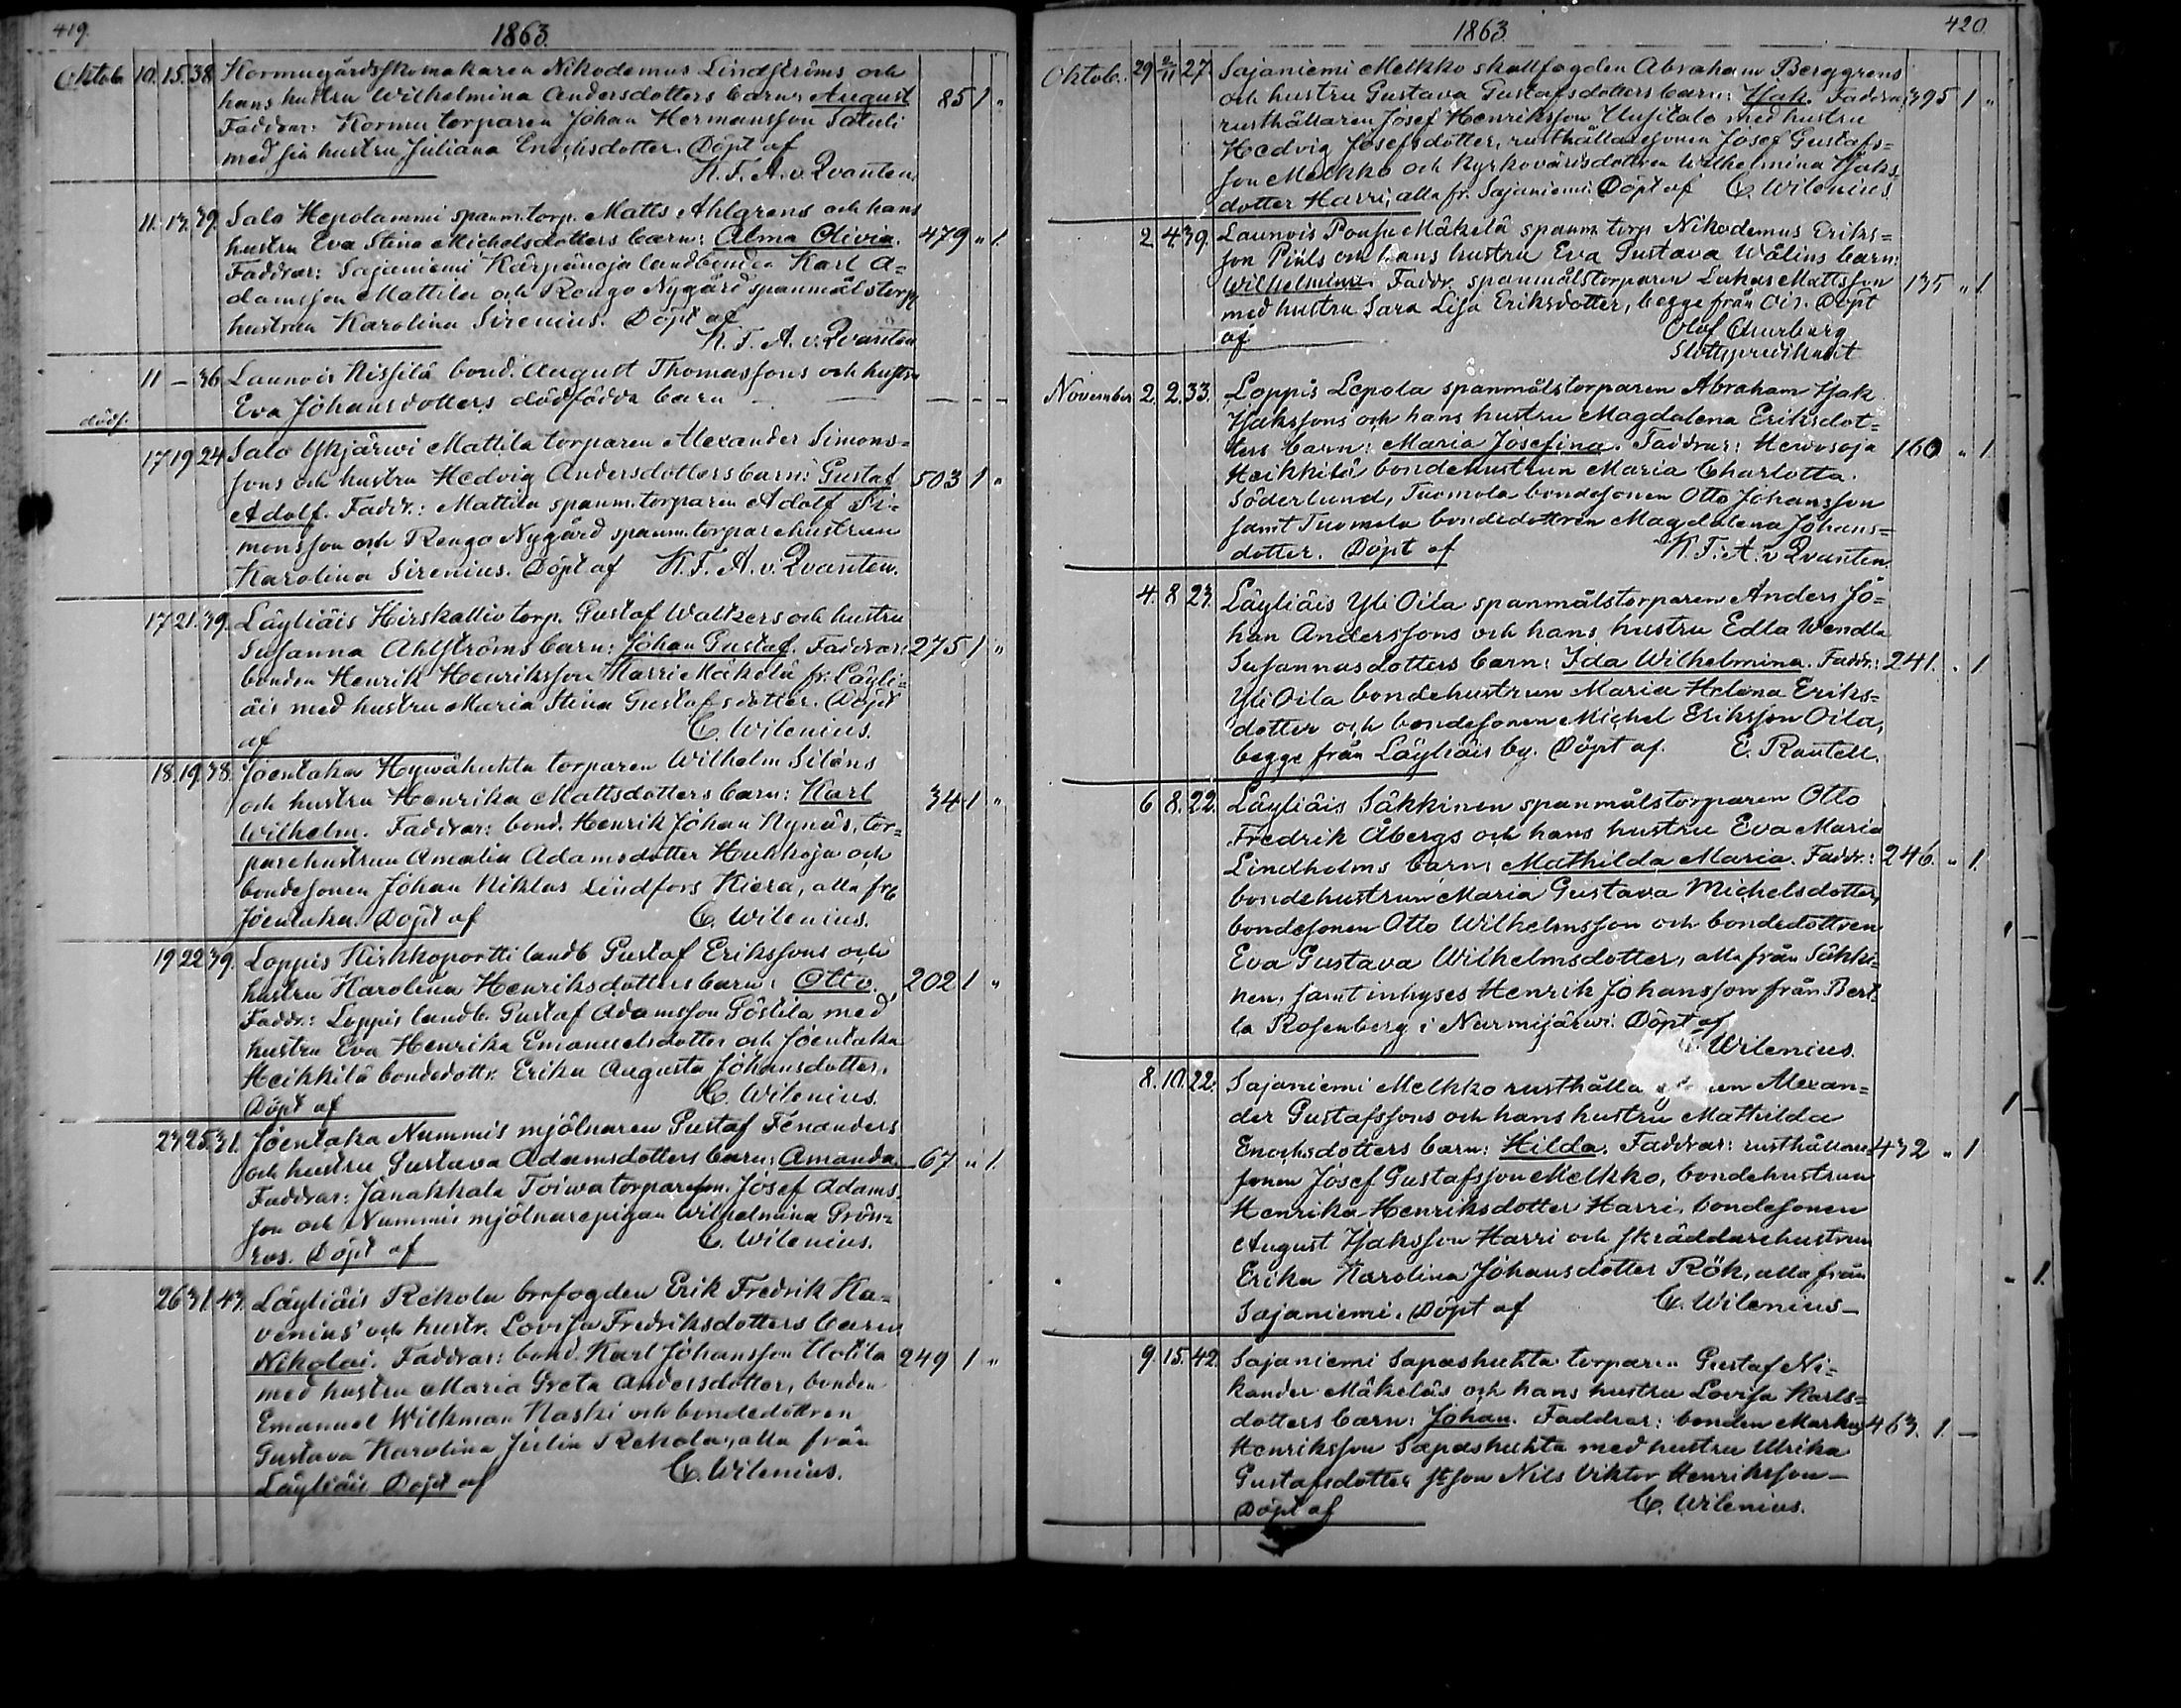 419.
1863.
Oktob. 10. 15. 38. Kormugårdsskomakaren Nikodemus Lindströms och
hans hustru Wilhelmina Andersdotters barn: August 85 1 "
Faddrar: Kormu torparen Johan Hermansson Satuli
med sin hustru Juliana Enochsdotter. Döpt af
K. F. A. v. Qvanten.
11. 13. 39. Salo Hepolammi spanm. torp. Matts Ahlgrens och hans
hustru Eva Stina Michelsdotters barn: Alma Olivia. 479 " 1.
Faddrar: Sajaniemi Kärpänoja landbonden Karl A=
damsson Mattila och Rengo Nygård spanmålstorp.
hustrun Karolina Sirenius. Döpt af
K. F. A. v. Qvanten
11 — 36 Launois Nissilä bond. August Thomassons och hustru
Eva Johansdotters dödfödda barn — — — — —
dödf.
17 19 24 Salo Ykjärwi Mattila torparen Alexander Simons=
sons och hustru Hedvig Andersdotters barn: Gustaf 503 1 "
Adolf. Faddr.: Mattila spanm. torparen Adolf Si=
monsson och Rengo Nygård spanm. torparehustrun
Karolina Sirenius. Döpt af K. F. A. v. Qvanten.
17 21. 39. Läyliäis Hirskallio torp. Gustaf Waltzers och hustru
Susanna Ahlströms barn: Johan Gustaf. Faddrar: 275 1 "
bonden Henrik Henriksson Harri Mäkelä fr. Läyli=
äis med hustru Maria Stina Gustafsdotter. Döpt
af C. Wilenius.
18. 19. 38. Joentaka Hywähuhta torparen Wilhelm Siléns
och hustru Henrika Mattsdotters barn: Karl 34 1 "
Wilhelm. Faddrar: bond. Henrik Johan Nynäs, tor=
parehustrun Amalia Adamsdotter Hukkoja och
bondesonen Johan Niklas Lindfors Kiera, alla frå
Joentaka. Döpt af C. Wilenius.
19 22 39. Loppis Kirkkoportti landb Gustaf Erikssons och
hustru Karolina Henriksdotters barn: Otto. 202 1 "
Faddr.: Loppis landb. Gustaf Adamsson Söstila med
hustru Eva Henrika Emanuelsdotter och Joentaka
Heikkilä bondedottr. Erika Augusta Johansdotter.
Döpt af C. Wilenius.
23 25. 31. Joentaka Nummis mjölnaren Gustaf Fenanders
och hustru Gustava Adamsdotters barn: Amanda 67 " 1.
Faddrar: Janakkala Toiwa torpareson. Josef Adams=
son och Nummis mjölnarepigan Wilhelmina Grön=
ros. Döpt af C. Wilenius.
26 31. 43. Läyliäis Rekola brofogden Erik Fredrik Ha=
venius' och hustr. Lovisa Fredriksdotters barn
Nikolai. Faddrar: bond. Karl Johansson Uotila 249 1 "
med hustru Maria Greta Andersdotter, bonden
Emanuel Wilkman Kaski och bondedottren
Gustava Karolina Julin Rekola, alla från
Läyliäis Döpt af C. Wilenius.
1863.
420.
Oktob. 29 2/11 27. Sajaniemi Melkko skallfogden Abraham Berggrens
och hustru Gustava Gustafsdotters barn: Isak. Faddrar: 395 1 "
rusthållaren Josef Henriksson Uusitalo med hustru
Hedvig Josefsdotter, rusthållaresonen Josef Gustafs=
son Melkko och kyrkovärdsdottren Wilhelmina Isaks=
dotter Harri, alla fr. Sajaniemi Döpt af C. Wilenius
2 4. 39. Launois Pousu Mäkelä spanm. torp. Nikodemus Eriks=
son Piils och hans hustru Eva Gustava Wålins barn:
Wilhelmina. Faddr. spanmålstorparen Lukas Mattsson 135 " 1
med hustru Sara Lisa Eriksdotter, begge från Ois. Döpt
af Olof Churberg
Slottspredikant
November 2. 2. 33. Loppis Lepola spanmålstorparen Abraham Isak
Isakssons och hans hustru Magdalena Eriksdot=
ters barn: Maria Josefina. Faddrar: Hewosoja 160 " 1.
Heikkilä bondehustrun Maria Charlotta
Söderlund, Tuomola bondesonen Otto Johansson
samt Tuomola bondedottren Magdalena Johans=
dotter. Döpt af K. F. A. v Qvanten.
4. 8 23. Läyliäis Yli Oila spanmålstorparen Anders Jo=
han Anderssons och hans hustru Edla Wendla
Susannasdotters barn: Ida Wilhelmina. Faddr.: 241. . 1
Yli Oila bondehustrun Maria Helena Eriks=
dotter och bondesonen Michel Eriksson Oila,
begge från Läyliäis by. Döpt af. E. Rautell.
6 8. 22. Läyliäis Säkkinen spanmålstorparen Otto
Fredrik Åbergs och hans hustru Eva Maria
Lindholms barn: Mathilda Maria. Faddr.: 246. " 1.
bondehustrun Maria Gustava Michelsdotter,
bondesonen Otto Wilhelmsson och bondedottren
Eva Gustava Wilhelmsdotter, alla från Säkki=
nen, samt inhyses Henrik Johansson från Bert=
la Rosenberg i Nurmijärwi. Döpt af
Wilenius.
8. 10. 22. Sajaniemi Melkko rusthålla Alexan=
der Gustafssons och hans hustru Mathilda
Enochsdotters barn: Hilda. Faddrar: rusthållare= 432 " 1
sonen Josef Gustafsson Melkko, bondehustrun
Henrika Henriksdotter Harri, bondesonen
August Isaksson Harri och skräddarehustrun
Erika Karolina Johansdotter Rök, alla från
Sajaniemi. Döpt af C. Wilenius—
9. 15. 42 Sajaniemi Sapashuhta torparen Gustaf Ni=
kander Mäkeläs och hans hustru Lovisa Karls=
dotters barn: Johan. Faddrar: bonden Markus 463. 1. —
Henriksson Sapashuhta med hustru Ulrika
Gustafsdotter stsson Nils Viktor Henriksson—
Döpt af C. Wilenius.